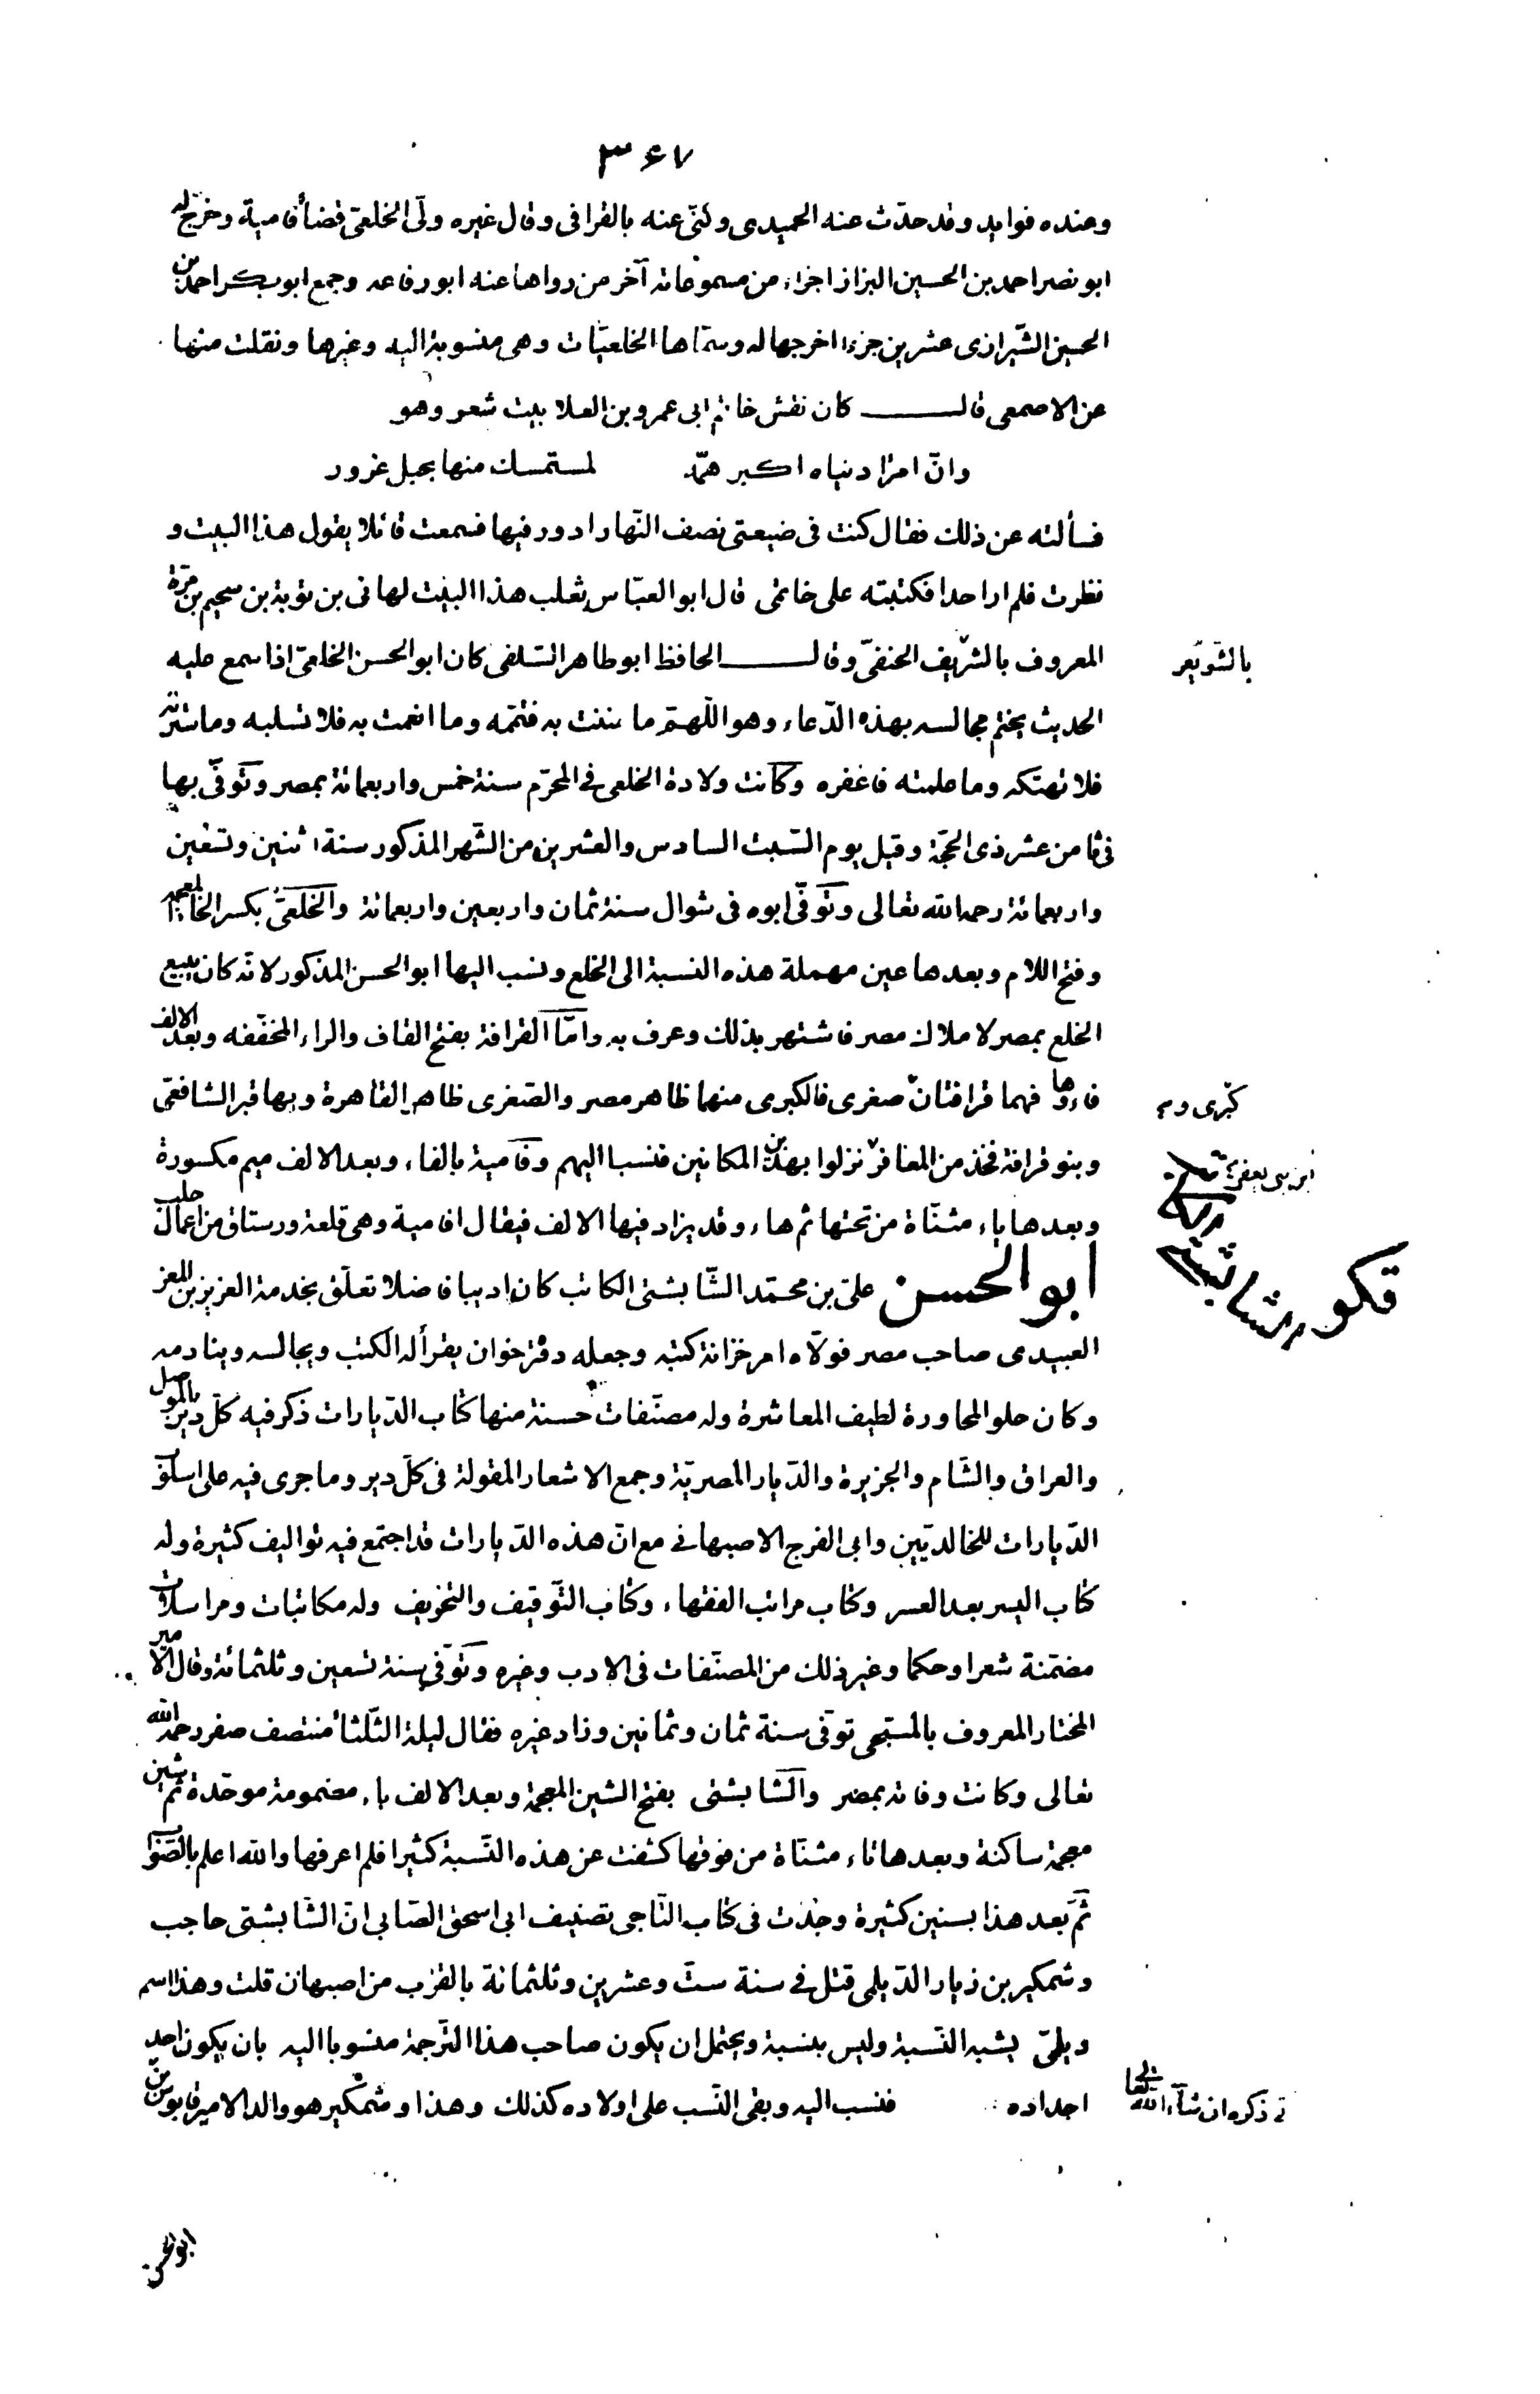 ٣٤٧
وعنده فوايد وقد حدّث عنه الحميدى وكنّى عنه بالقرافى وقال غيره ولّى الخلعىّ قضاء فامية وخرّج له
ابو نصر احمد بن الحسين البزاز اجزاء من مسموعاته آخر من رواها عنه ابو رفاعه وجمع ابو بكر احمد بن
الحسين الشّيرازى عشرين جزءا اخرجها له وسمّاها الخلعيّات وهى منسوبة اليه وغيرها ونقلت منها
عن الاصمعى قال كان نقش خاتم ابى عمرو بن العلا بيت شعر وهو
وانّ امرا دنياه اكبر همّه لمستمسك منها بحبل غرور
فسألته عن ذلك فقال كنت فى ضيعتى نصف النّهار ادور فيها فسمعت قائلا يقول هذا البيت و
نظرت فلم ار احدا فكتبته على خاتمى قال ابو العبّاس ثعلب هذا البيت لهانى بن توبة بن سحيم بن مرّة
المعروف بالشريف الحنفىّ وقال الحافظ ابو طاهر السّلفى كان ابو الحسن الخلعىّ اذا سمع عليه
بالشّويعر
الحديث يختم مجالسه بهذه الدّعاء وهو اللّهمّ ما مننت به فتمّمه وما انعمت به فلا تسلبه وما سترته
فلا تهتكه وما علمته فاغفره وكانت ولادة الخلعى فى المحرّم سنة خمس واربعمائة بمصر وتوفّى بها
فى ثامن عشر ذى الحجّة وقيل يوم السّبت السادس والعشرين من الشّهر المذكور سنة اثنين وتسعين
واربعمائة رحمه الله تعالى وتوفّى ابوه فى شوال سنة ثمان واربعين واربعمائة والخلعىّ بكسر الخاء المعجمة
وفتح اللام وبعدها عين مهملة هذه النسبة الى الخلع ونسب اليها ابو الحسن المذكور لانّه كان يبيع
الخلع بمصر لاملاك مصر فاشتهر بذلك وعرف به وامّا القرافة بفتح القاف والراء المخفّفه وبعد الالف
فاء وها فهما قرافتان صغرى فالكبرى منهما ظاهر مصر والصّغرى ظاهر القاهرة وبها قبر الشافعىّ
كبرى و
وبنو قرافة فخذ من المعافر نزلوا بهذين المكانين فنسبا اليهم وفامية بالفاء وبعد الالف ميم مكسورة
وبعدها ياء مثنّاة من تحتها ثم هاء وقد يزاد فيها الالف فيقال افامية وهى قلعة ورستاق من اعمال حلب
ابو الحسن على بن محمّد الشّابشتى الكاتب كان اديبا فاضلا تعلّق بخدمة العزيز بن المعز
الشابشتى
العبيدى صاحب مصر فولّاه امر خزانة كتبه وجعله دفتر خوان يقرأ له الكتب ويجالسه وينادمه
وكان حلو المحاورة لطيف المعاشرة وله مصنّفات حسنة منها كتاب الدّيارات ذكر فيه كلّ دير بالموصل
والعراق والشّام والجزيرة والدّيار المصريّة وجمع الاشعار المقولة فى كلّ دير وما جرى فيه على اسلوب
الدّيارات للخالديّين وابى الفرج الاصبهانى مع انّ هذه الدّيارات قد اجتمع فيه تواليف كثيرة وله
كتاب اليسر بعد العسر وكتاب مراتب الفقهاء وكتاب التّوقيف والتخويف وله مكاتبات ومراسلات
مضمّنة شعرا وحكما وغير ذلك من المصنّفات فى الادب وغيره وتوفّى سنة تسعين وثلثمائة وقال الامير
المختار المعروف بالمسبّحى توفّى سنة ثمان وثمانين وزاد غيره فقال ليلة الثّلثا منتصف صفر رحمه الله
تعالى وكانت وفاته بمصر والشّابشتى بفتح الشين المعجمة وبعد الالف باء مضمومة موحّدة ثم شين
معجمة ساكنة وبعدها تاء مثنّاة من فوقها كشفت عن هذه النّسبة كثيرا فلم اعرفها والله اعلم بالصّواب
ثمّ بعد هذا بسنين كثيرة وجدت فى كتاب التّاجى تصنيف ابى اسحق الصّابى انّ الشّابشتى حاجب
وشمكير بن زيار الدّيلمى قتل فى سنة ستّ وعشرين وثلثمائة بالقرب من اصبهان قلت وهذا اسم
ديلمىّ يشبه النّسبة وليس بنسبة ويحتمل ان يكون صاحب هذا التّرجمة منسوبا اليه بان يكون احد
اجداده فنسب اليه وبقى النّسب على اولاده كذلك وهذا وشمكير هو والد الامير قابوس بن
ذكره ان شآء الله تعالى
ابو الحسن